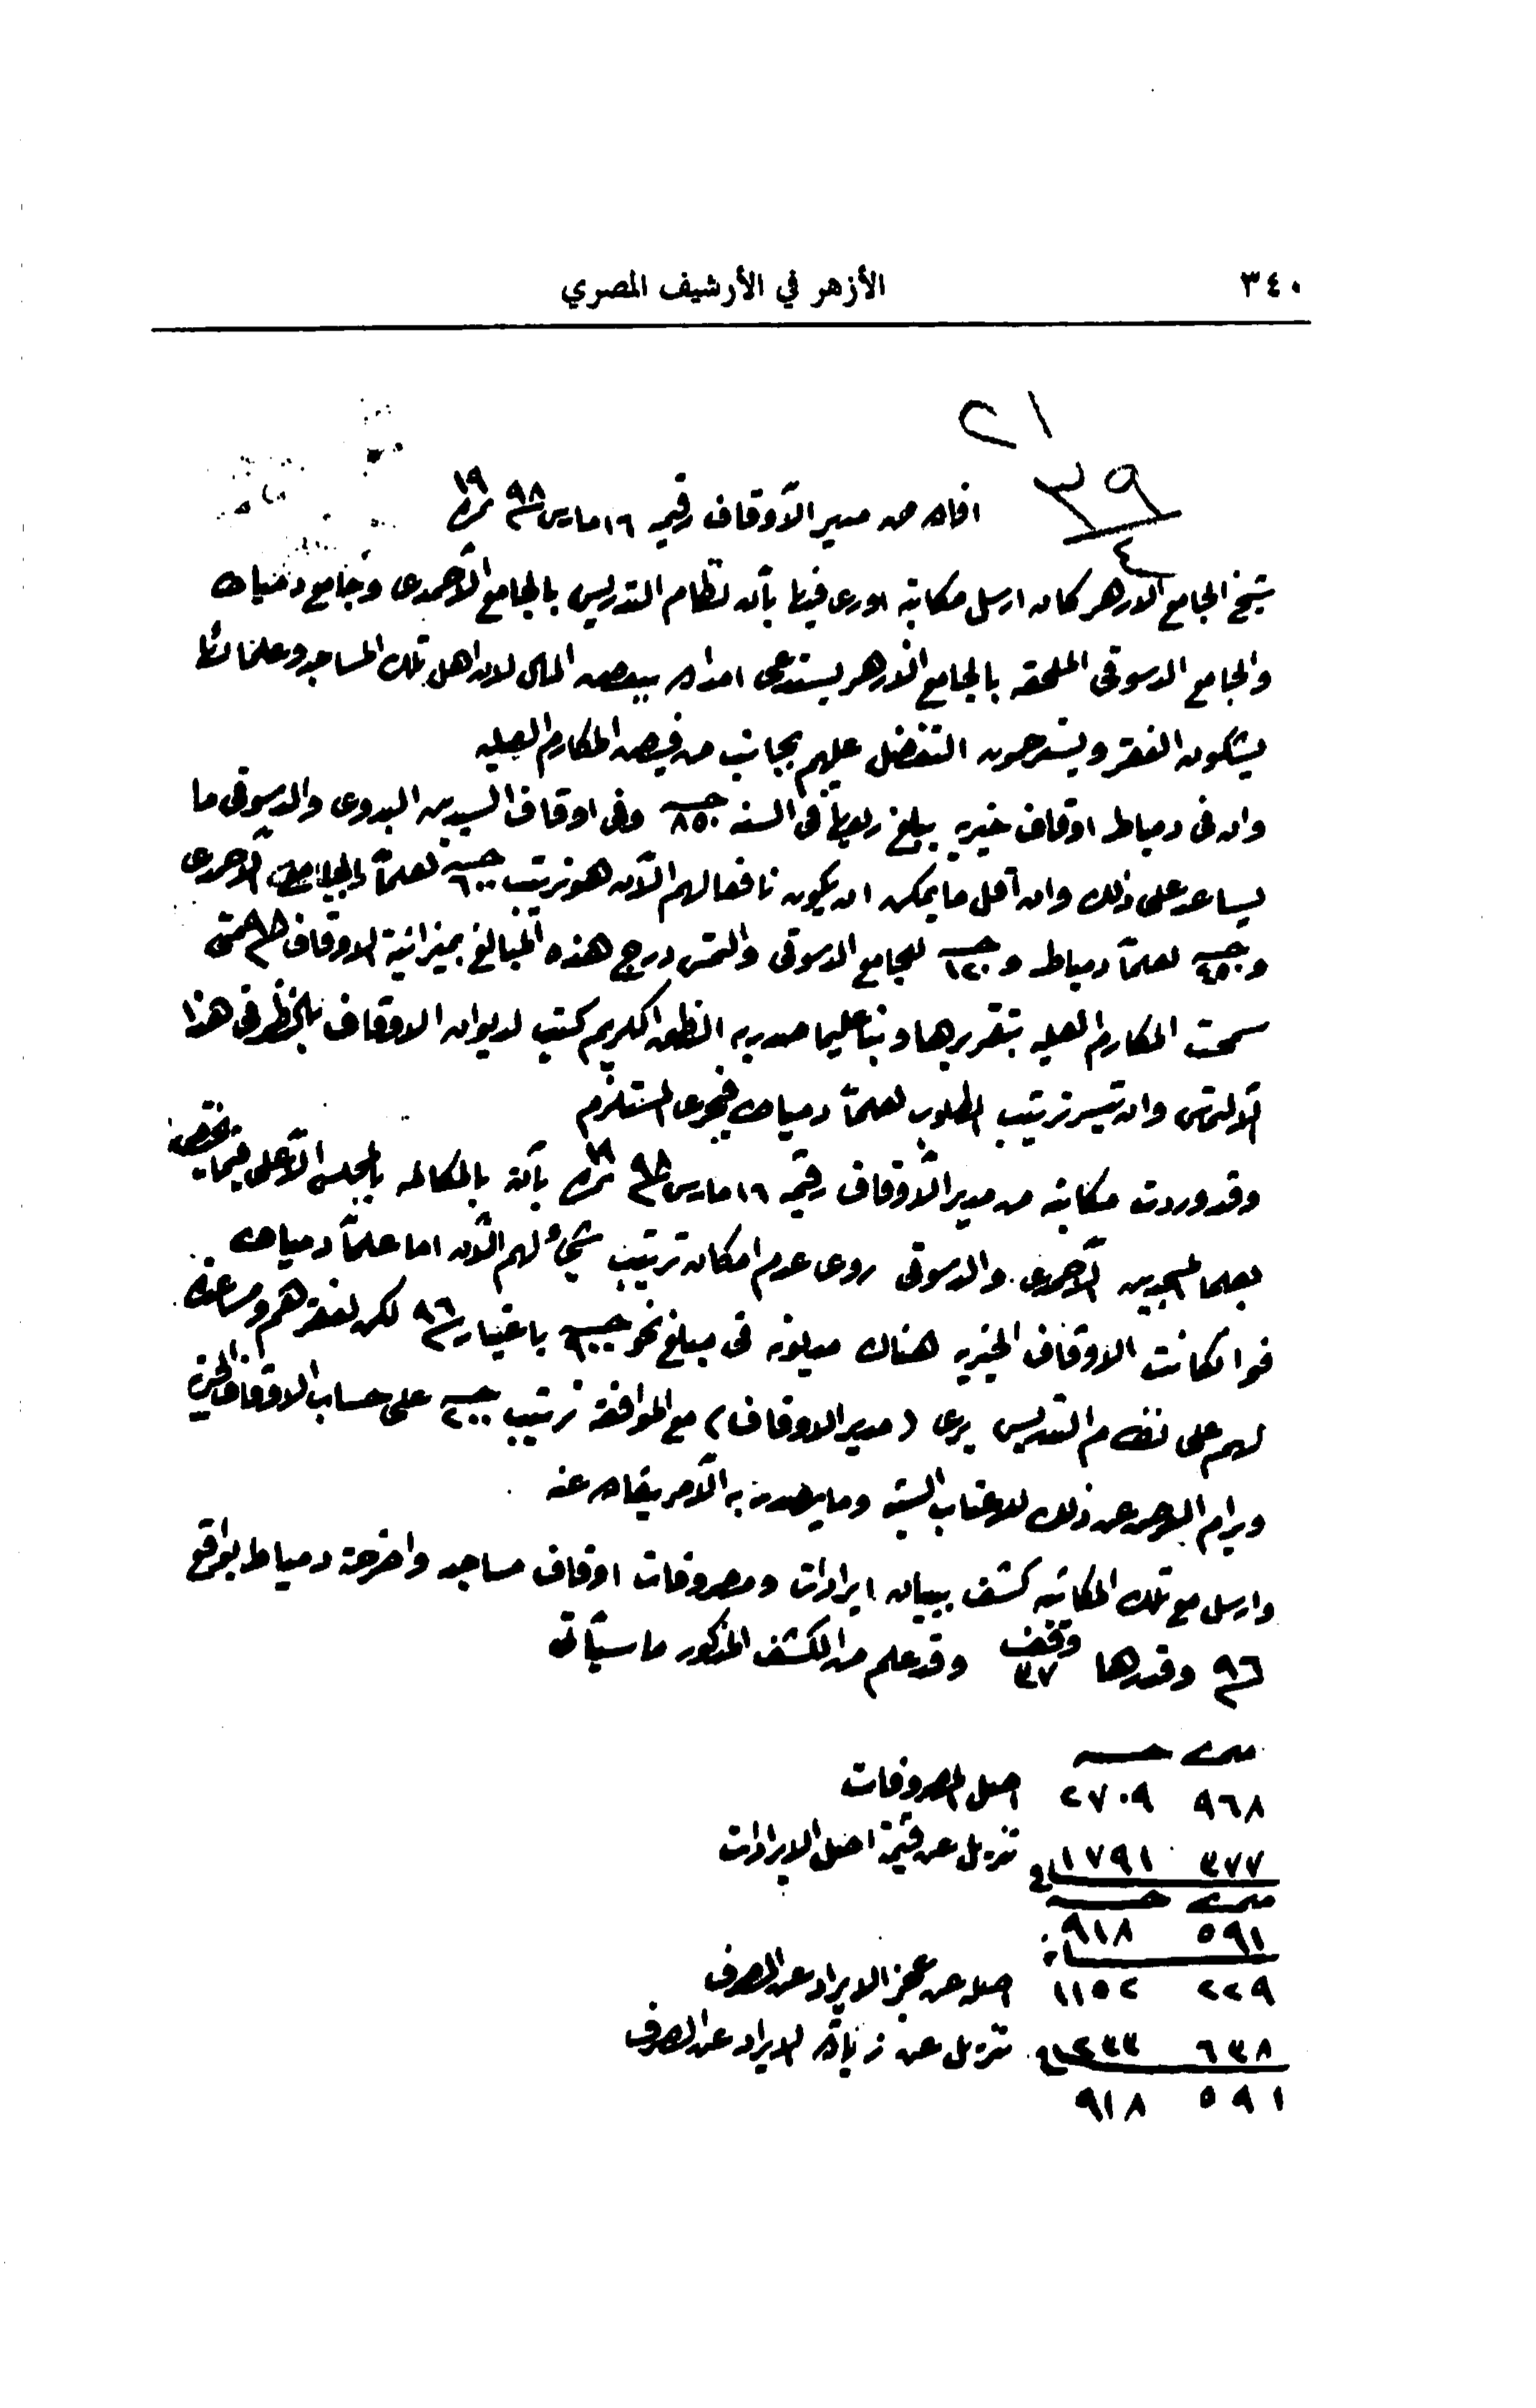 ٣٤٠ الأزهر في الأرشيف المصري
٢١
٣٩
٤
افاده من مدير الأوقاف رقيمه ١٦ مارس سنة ٩٨ نمرة ١٩
شيخ الجامع الازهر كان ارسل مكاتبه اورى فيها بأن نظام التدريس بالجامع الأحمدى وجامع دمياط
والجامع الدسوقى الملحقه بالجامع الازهر يستدعى امداده ببعض المال لان اهل تلك المساجد وعلمائها
يشكون الفقر ويسترحمون التفضل عليهم بجانب من فيض المكارم العليه
وان فى دمياط اوقاف خيريه يبلغ ريعها فى السنه ٨٥٠ جنيه وفى اوقاف السيدين البدوى والدسوقى ما
يساعد على ذلك وان أقل ما يمكن ان يكون نافعا لهم الآن هو ترتيب ٦٠٠ جنيه لعلمآ الجامع الأحمدى
و ٤٥٠ جنيه لعلمآ دمياط و ١٢٠ جنيه للجامع الدسوقى والتمس درج هذه المبالغ بميزانية الاوقاف سنة ٩٨ متى
سمحت المكارم العليه بتقريرها وبنا على ما صدر به النطق الكريم كتب لديوان الاوقاف بالنظر فى هذا
الالتماس وان تيسر ترتيب المطلوب لعلمآ دمياط فيجرى المستلزم
وقد وردت مكاتبه من مدير الأوقاف رقيمه ١٦ مارس سنة ٩٨ نمرة ١٩ بأنه بالمكالمه بالمجلس الأعلى فيما يختص
بعلما المسجدين الأحمدى والدسوقى روى عدم امكان ترتيب شئ لهم الآن اما علمآ دمياط
فوان كانت الاوقاف الخيريه هناك مديونه فى مبلغ نحو ٩٠٠ جنيه باعتبار سنة ٩٦ لكن لفقرهم ومساعدة
لهم على نظام التدريس يرى (مدير الاوقاف) مع الموافقه ترتيب ٢٠٠ جنيه على حساب الاوقاف الخيريه
ويرام العرض عن ذلك للاعتاب السنيه وما يصدر به الأمر يفاد عنه
وارسل مع تلك المكاتبه كشف ببيان ايرادات ومصروفات اوقاف مساجد واضرحة دمياط بواقع
سنة ٩٦ وقدرها ٣٧ وقف وقد علم من الكشف المذكور ما سيأتى
مليم جنيه
٩٦٨ ٢٧٠٩ اصل المصروفات
٣٧٧ ١٧٩١ تنزيل عن قيمة اصل الايرادات
مليم جنيه
٥٩١ ٩١٨
٢٢٩ ١١٥٢ اصله عن عجز الايراد عن المصرف
٦٣٨ ٢٣٣ تنزيل عن زيادة الايراد عن المصرف
٥٩١ ٩١٨